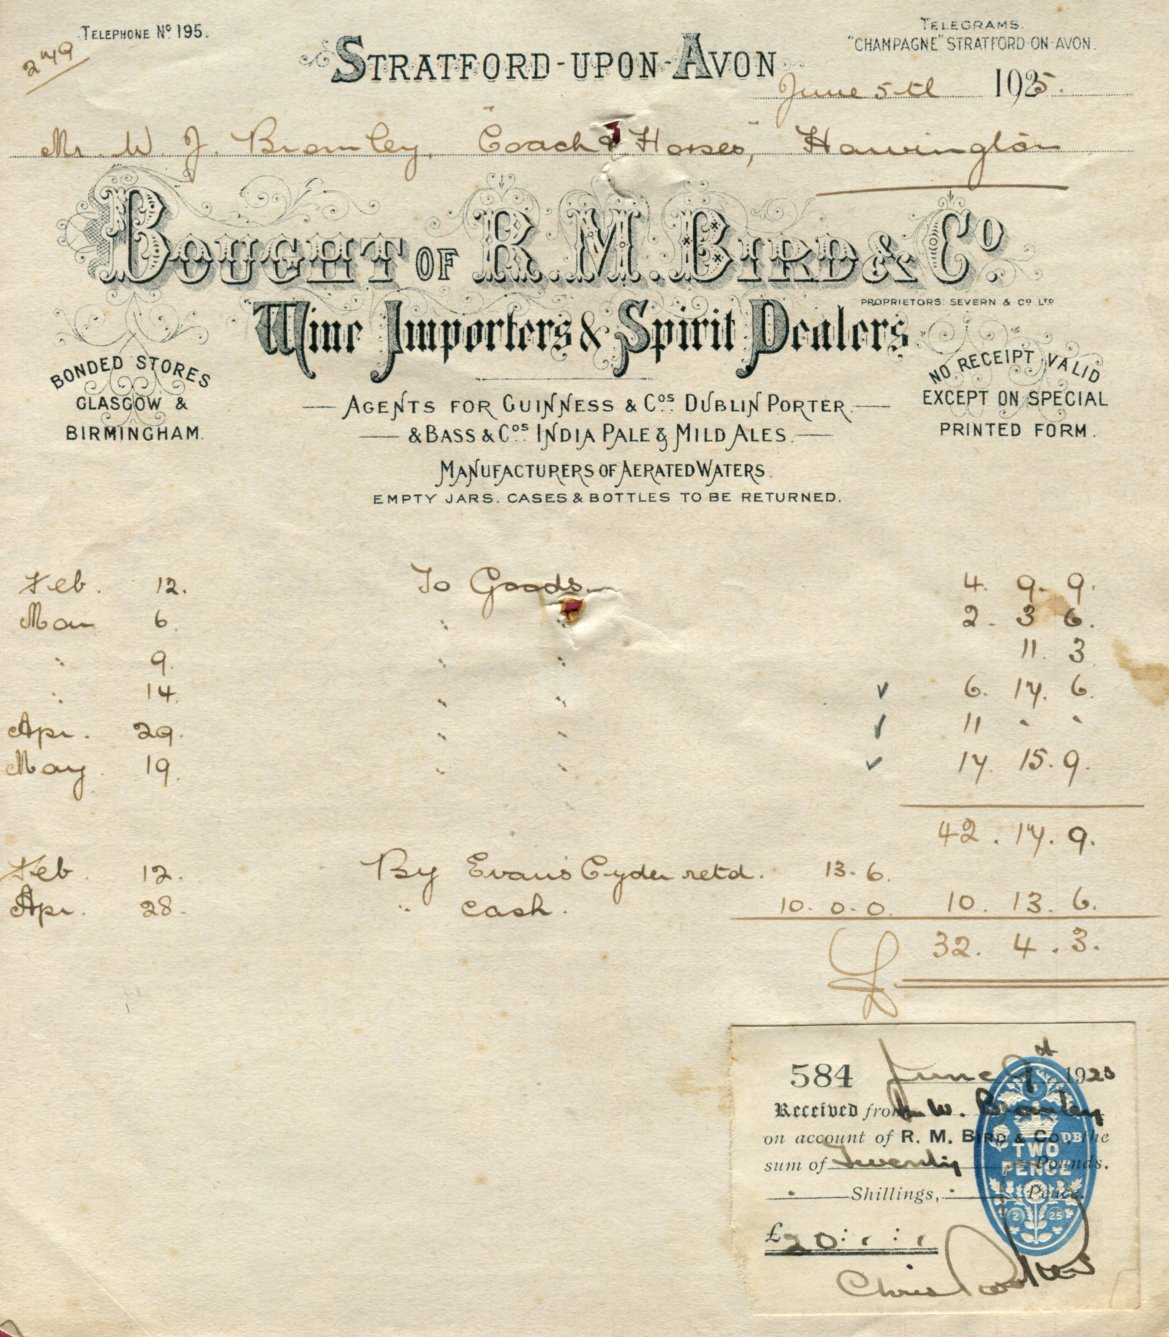 279
TELEPHONE Nº 195.
TELEGRAMS.
"CHAMPAGNE" STRATFORD-ON-AVON.
STRATFORD-UPON-AVON
June 5th 1925.
Mr. W. J. Bromley, "Coach & Horses", Harvington
BOUGHT OF R. M. BIRD & Cº
PROPRIETORS SEVERN & Cº LTD
Wine Importers & Spirit Dealers
BONDED STORES
GLASGOW &
BIRMINGHAM.
NO RECEIPT VALID
EXCEPT ON SPECIAL
PRINTED FORM.
AGENTS FOR GUINNESS & Cos DUBLIN PORTER
& BASS & Cos INDIA PALE & MILD ALES.
MANUFACTURERS OF AERATED WATERS.
EMPTY JARS. CASES & BOTTLES TO BE RETURNED.
Feb. 12. To Goods 4. 9. 9.
Mar 6. " " 2. 3 6.
" 9. " " 11. 3
" 14. " " ✓ 6. 17. 6.
Apr. 29. " " ✓ 11 " "
May 19. " " ✓ 17. 15. 9.
42. 17. 9.
Feb. 12. By Evans Cyder retd. 13. 6.
Apr. 28. " cash. 10. 0. 0. 10. 13. 6.
£ 32. 4. 3.
584 June 9th 1925
Received from W. Bromley
on account of R. M. BIRD & CO., the
sum of Twenty Pounds.
Shillings, Pence.
£20
TWO
PENCE
DB
2 25
Chris